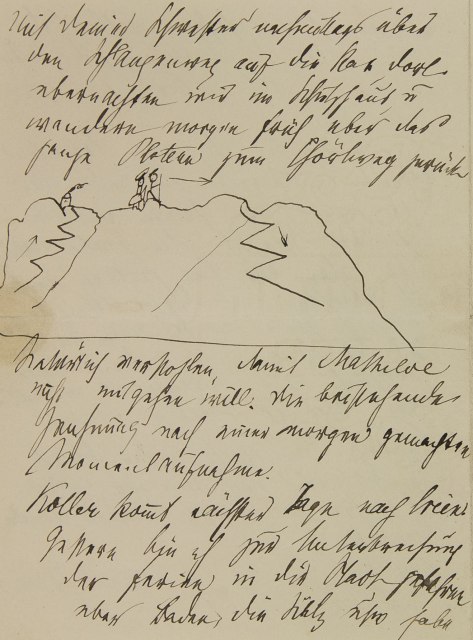 mit deiner Schwester nachmittags über
den Schlangenweg auf die Rax dort
übernachten wir im Schutzhaus u
wandern morgen früh über das
ganze Plateau zum Thörlweg zurück
natürlich verstohlen, damit Mathilde
nicht mitgehen will. Die beistehende
Zeichnung nach einer morgen gemachten
Momentaufnahme.
Koller kommt nächster Tage nach
Gestern bin ich zur Unterbrechung
der Ferien in die Stadt gefahren
über Baden, die Sulz usw habe